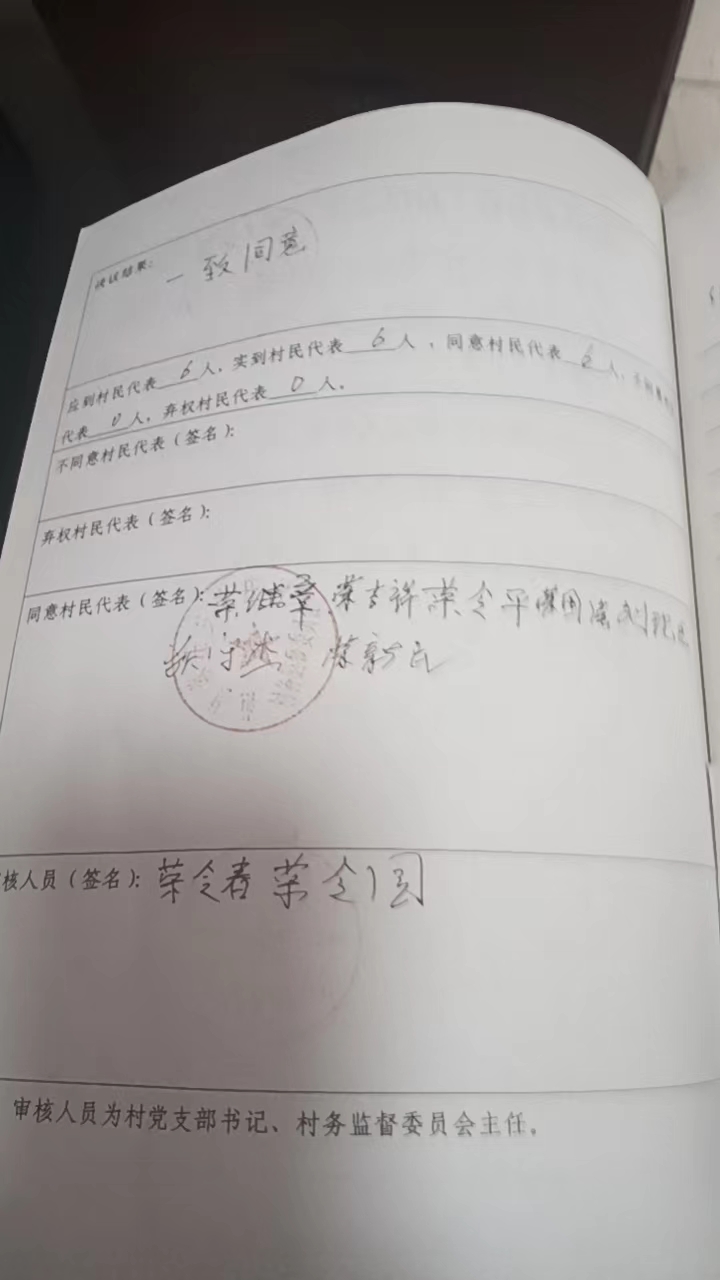 决议结果:
一致同意
应到村民代表 6 人,实到村民代表 6 人,同意村民代表 6 人,不同意村民
代表 0 人,弃权村民代表 0 人。
不同意村民代表(签名):
弃权村民代表(签名):
同意村民代表(签名): 荣继章 荣吉祥 荣令平
荣新民
核人员(签名): 荣令春 荣令国
审核人员为村党支部书记、村务监督委员会主任。